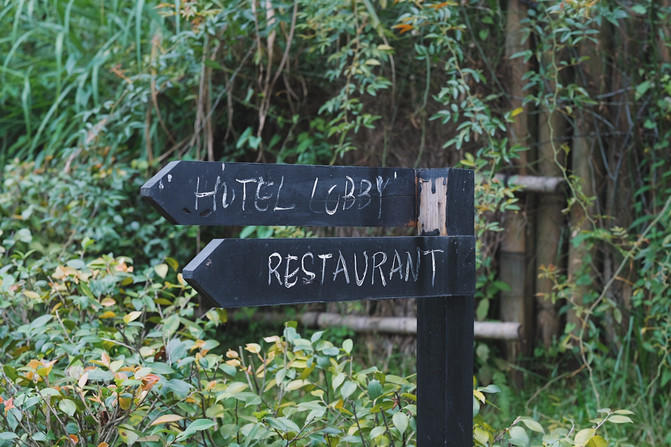 HOTEL LOBBY
RESTAURANT